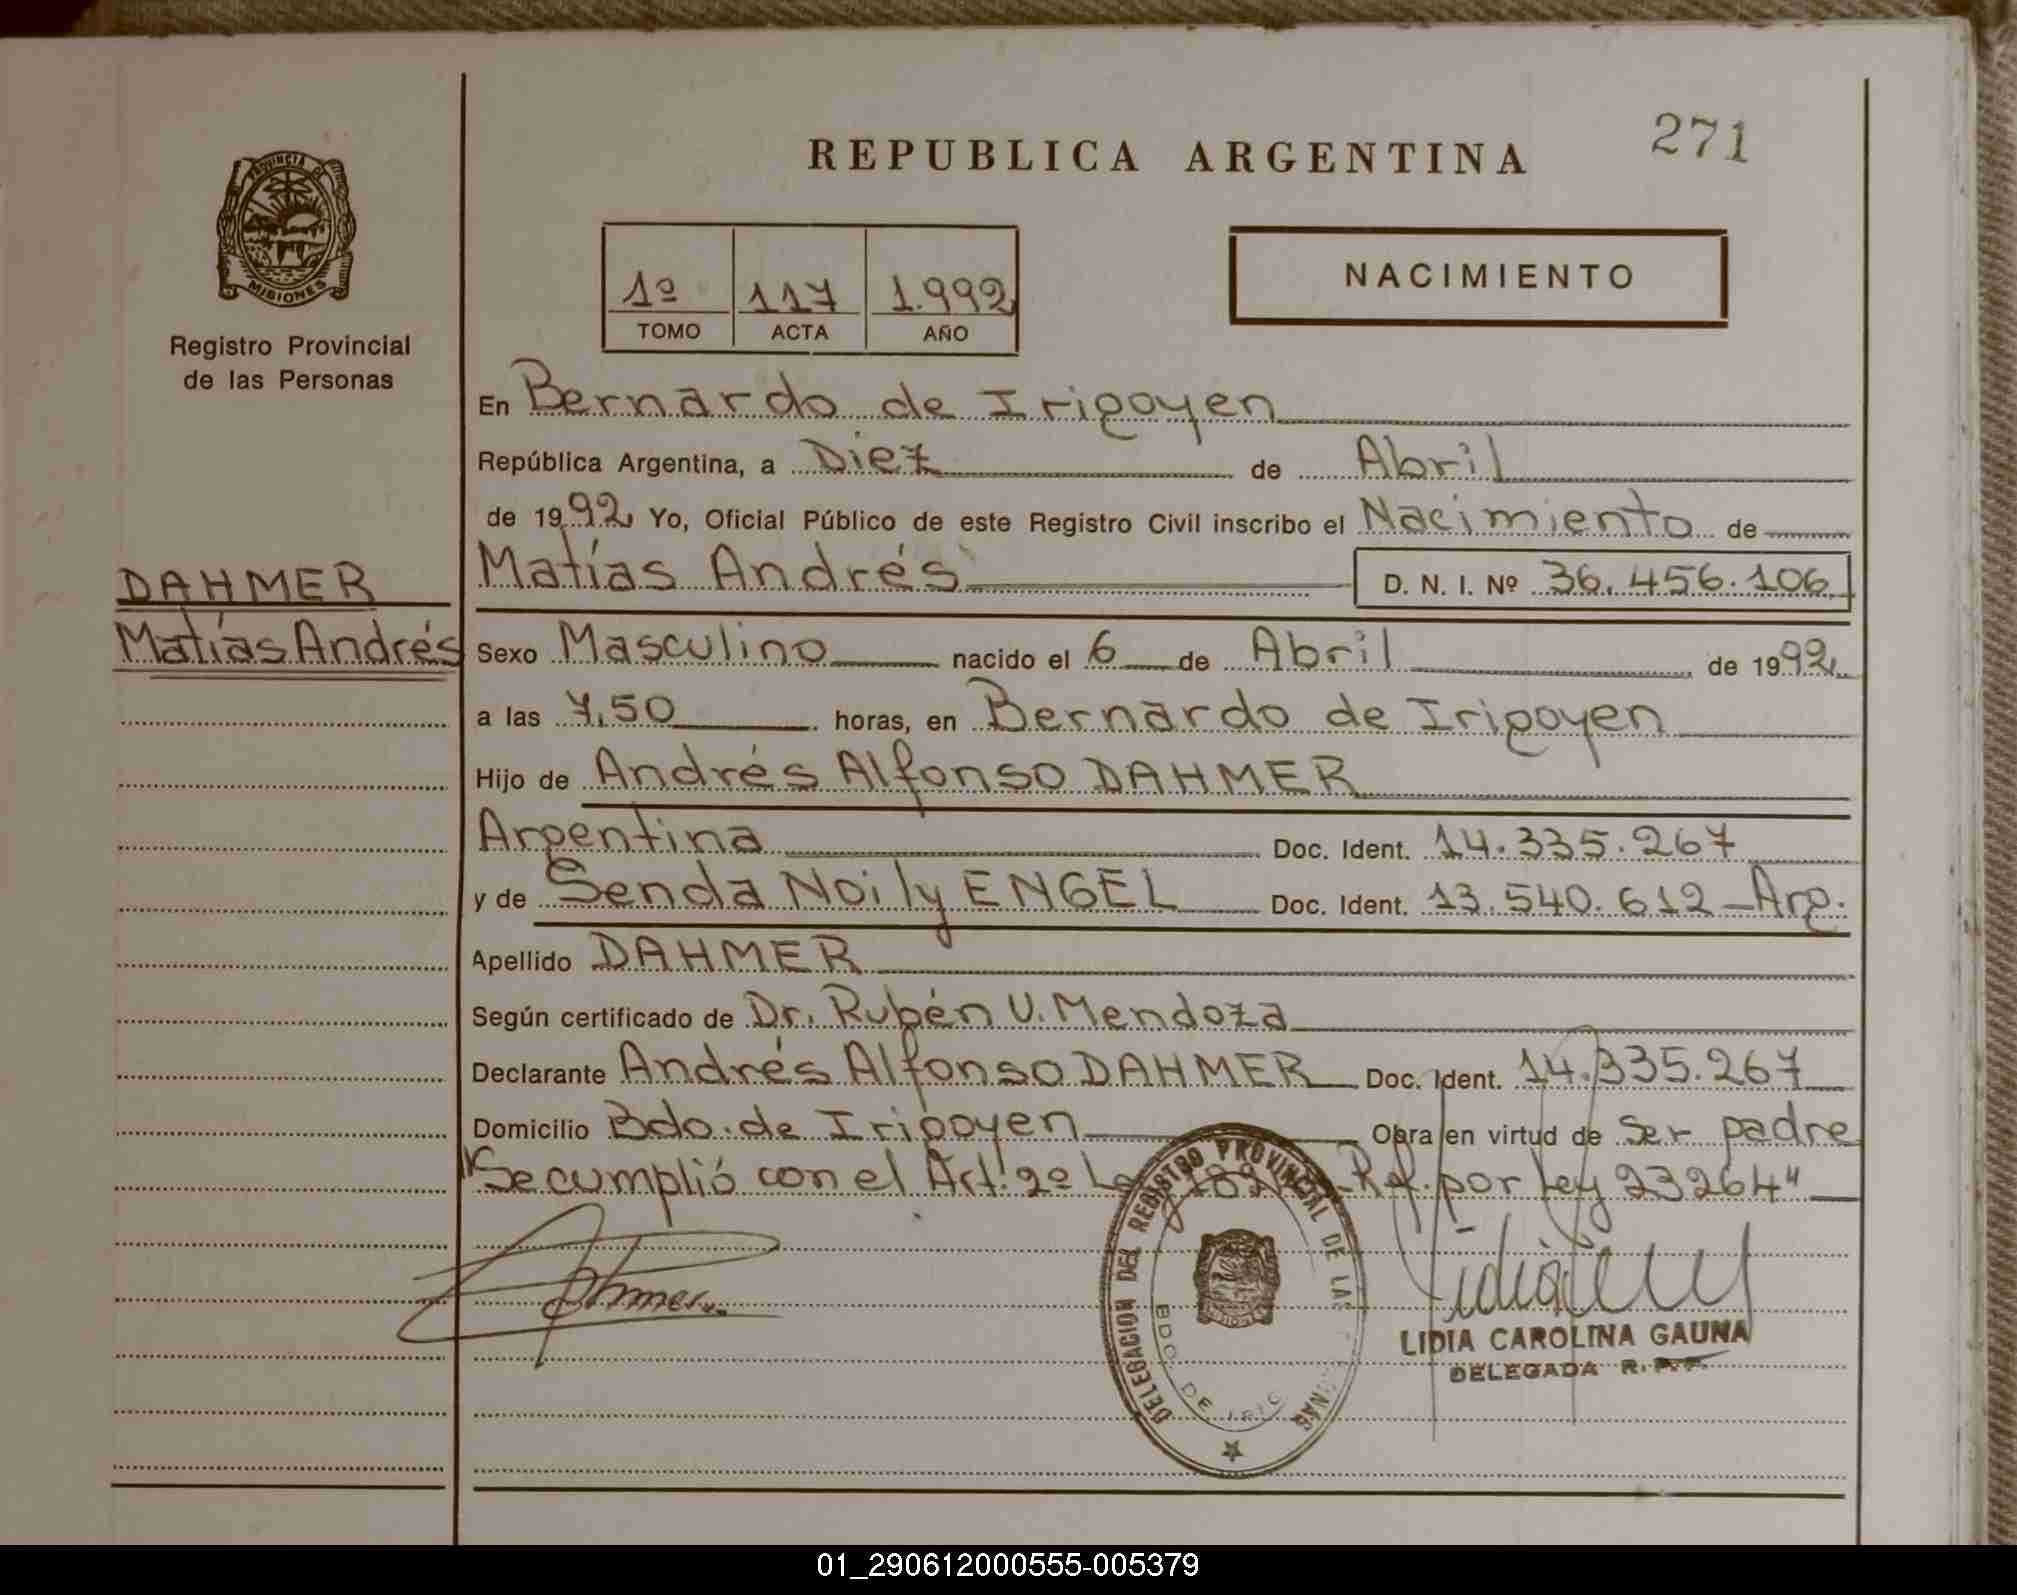 271
REPUBLICA ARGENTINA
PROVINCIA DE
MISIONES
Registro Provincial
de las Personas
1º 117 1.992
TOMO ACTA AÑO
NACIMIENTO
En Bernardo de Irigoyen
República Argentina, a Diez de Abril
de 1992 Yo, Oficial Público de este Registro Civil inscribo el Nacimiento de
Matías Andrés D. N. I. Nº 36.456.106
DAHMER
Matías Andrés
Sexo Masculino nacido el 6 de Abril de 1992
a las 7,50 horas, en Bernardo de Irigoyen
Hijo de Andrés Alfonso DAHMER
Argentina Doc. Ident. 14.335.267
y de Senda Noily ENGEL Doc. Ident. 13.540.612 - Arg.
Apellido DAHMER
Según certificado de Dr. Rubén U. Mendoza
Declarante Andrés Alfonso DAHMER Doc. Ident. 14.335.267
Domicilio Bdo. de Irigoyen Obra en virtud de ser padre
"Se cumplió con el Art. 2º Ref. por Ley 23264"
DELEGACION DEL REGISTRO PROVINCIAL DE LAS
BDO. DE IRIG
LIDIA CAROLINA GAUNA
DELEGADA R.P.P.
01_290612000555-005379